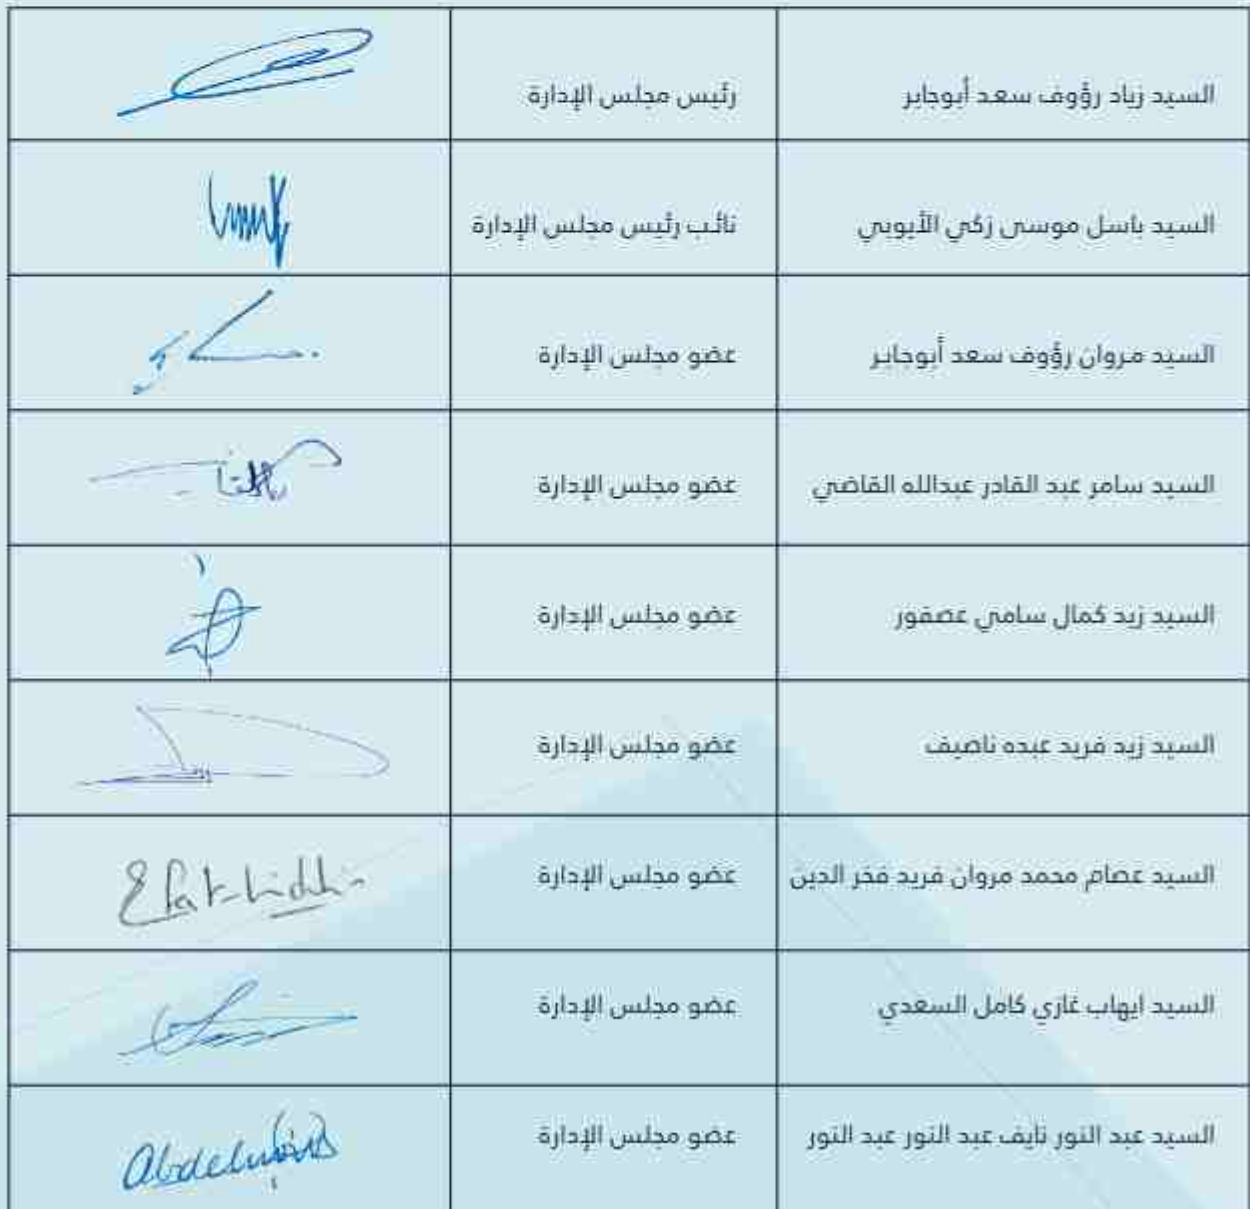 السيد زياد رؤوف سعد أبوجابر رئيس مجلس الإدارة
السيد باسل موسى زكي الأيوبي نائب رئيس مجلس الإدارة
السيد مروان رؤوف سعد أبوجابر عضو مجلس الإدارة
السيد سامر عبد القادر عبدالله القاضي عضو مجلس الإدارة
السيد زيد كمال سامي عصفور عضو مجلس الإدارة
السيد زيد فريد عبده ناصيف عضو مجلس الإدارة
السيد عصام محمد مروان فريد فخر الدين عضو مجلس الإدارة
السيد ايهاب غازي كامل السعدي عضو مجلس الإدارة
السيد عبد النور نايف عبد النور عبد النور عضو مجلس الإدارة